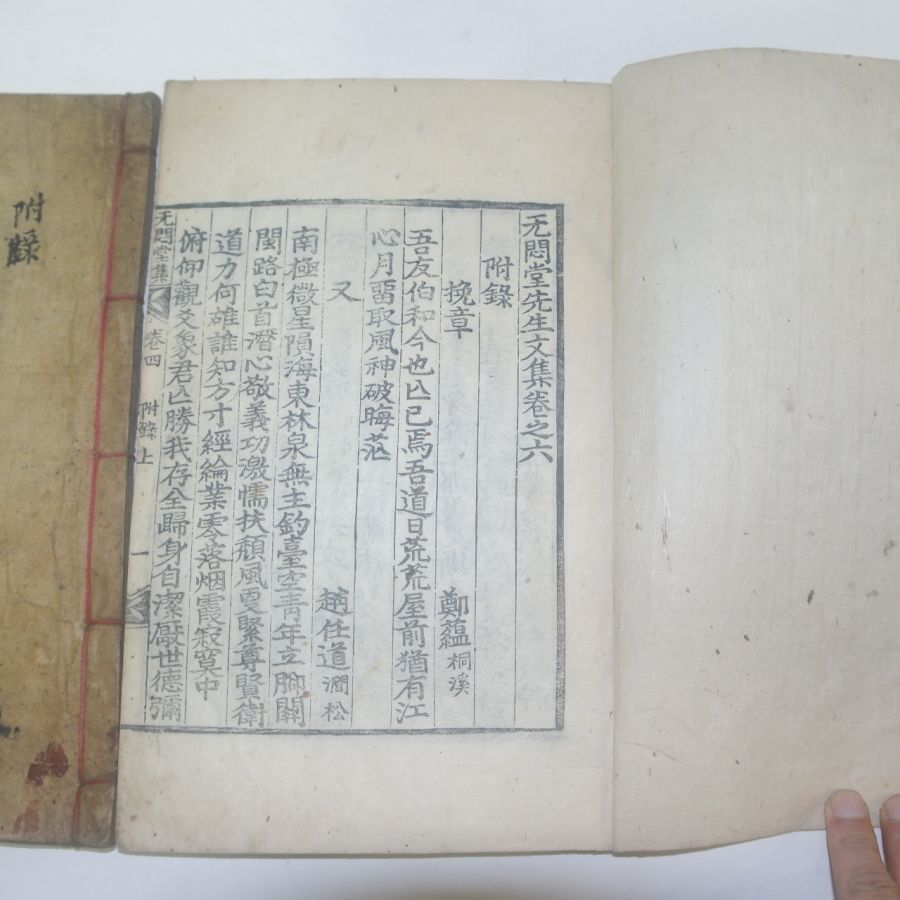 无悶堂先生文集卷之六
附錄
挽章
鄭蘊桐溪
吾友伯和今也亾已焉吾道日荒荒屋前猶有江
心月畱取風神破晦茫
又
趙任道澗松
南極微星隕海東林泉無主釣臺空靑年立脚關
閩路白首潛心敬義功激懦扶頹風更緊尊賢衛
道力何雄誰知方寸經綸業零落烟霞寂寞中
俯仰觀爻象君亾勝我存全歸身自潔厭世德彌
无悶堂集
卷四
附錄上
一
附錄